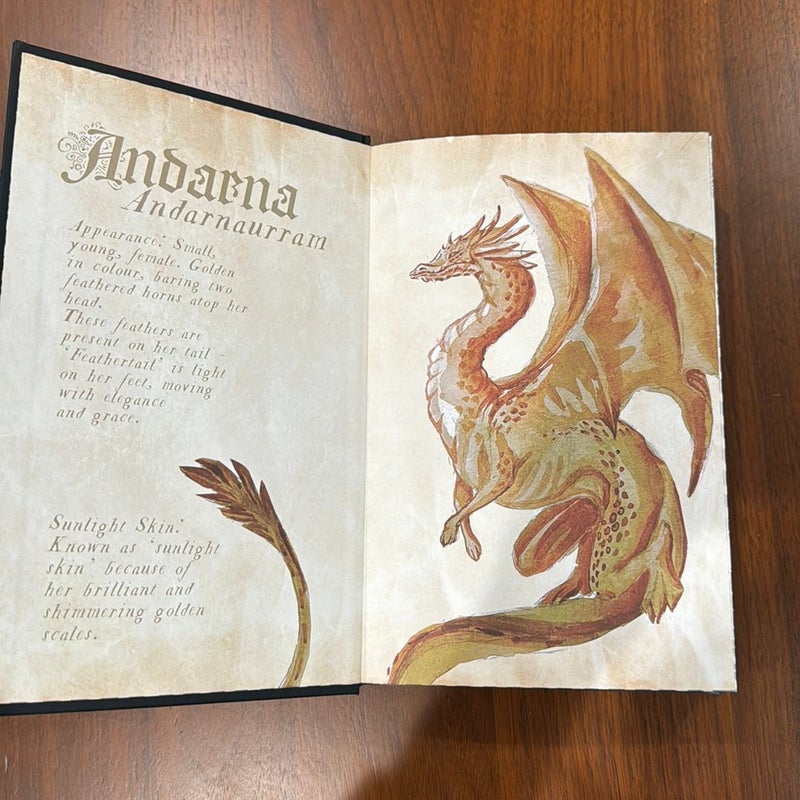 Andarna
Andarnaurram
Appearance: Small,
young, female. Golden
in colour, baring two
feathered horns atop her
head.
These feathers are
present on her tail –
'Feathertail' is light
on her feet, moving
with elegance
and grace.
Sunlight Skin:
Known as 'sunlight
skin' because of
her brilliant and
shimmering golden
scales.